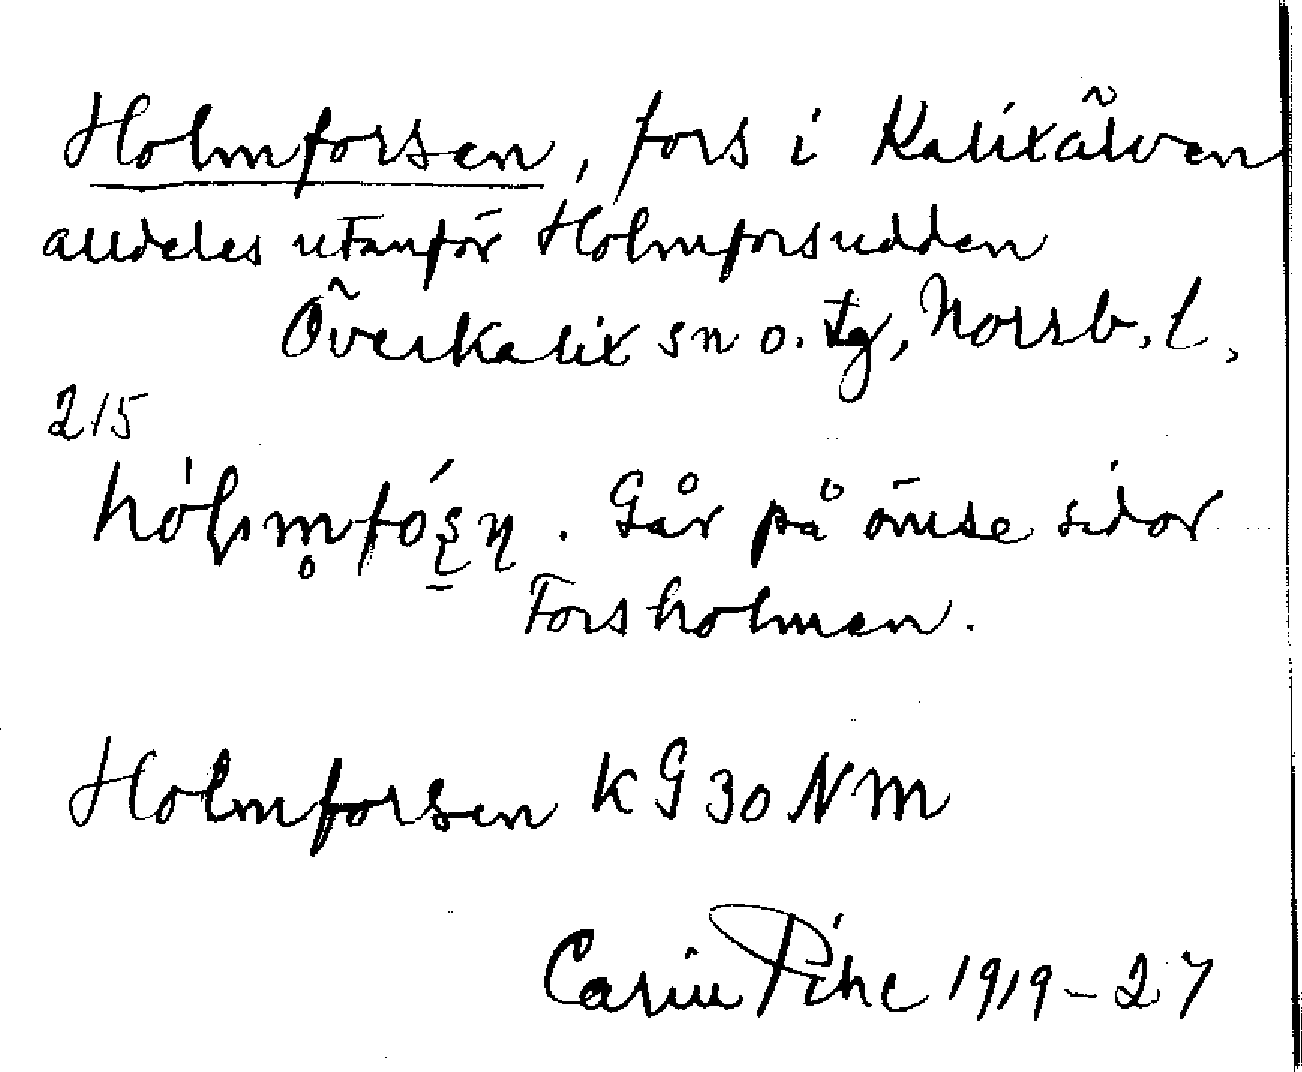 Holmforsen, fors i Kalixälven
alldeles utanför Holmforsudden
Överkalix sn o. tg, Norrb. l,
215
Går på ömse sidor
Forsholmen.
Holmforsen KG 30 NM
Carin Pihl 1919-27